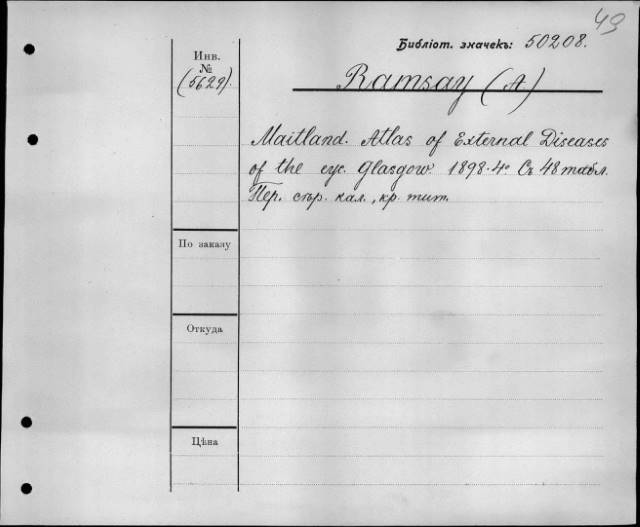 49
Библіот. значекъ: 50208.
Инв.
№
(5629).
Ramsay (A)
Maitland. Atlas of External Diseases
of the eye. Glasgow. 1898. 4º Съ 48 табл.
Пер. сѣр. кал., кр. тит.
По заказу
Откуда
Цѣна